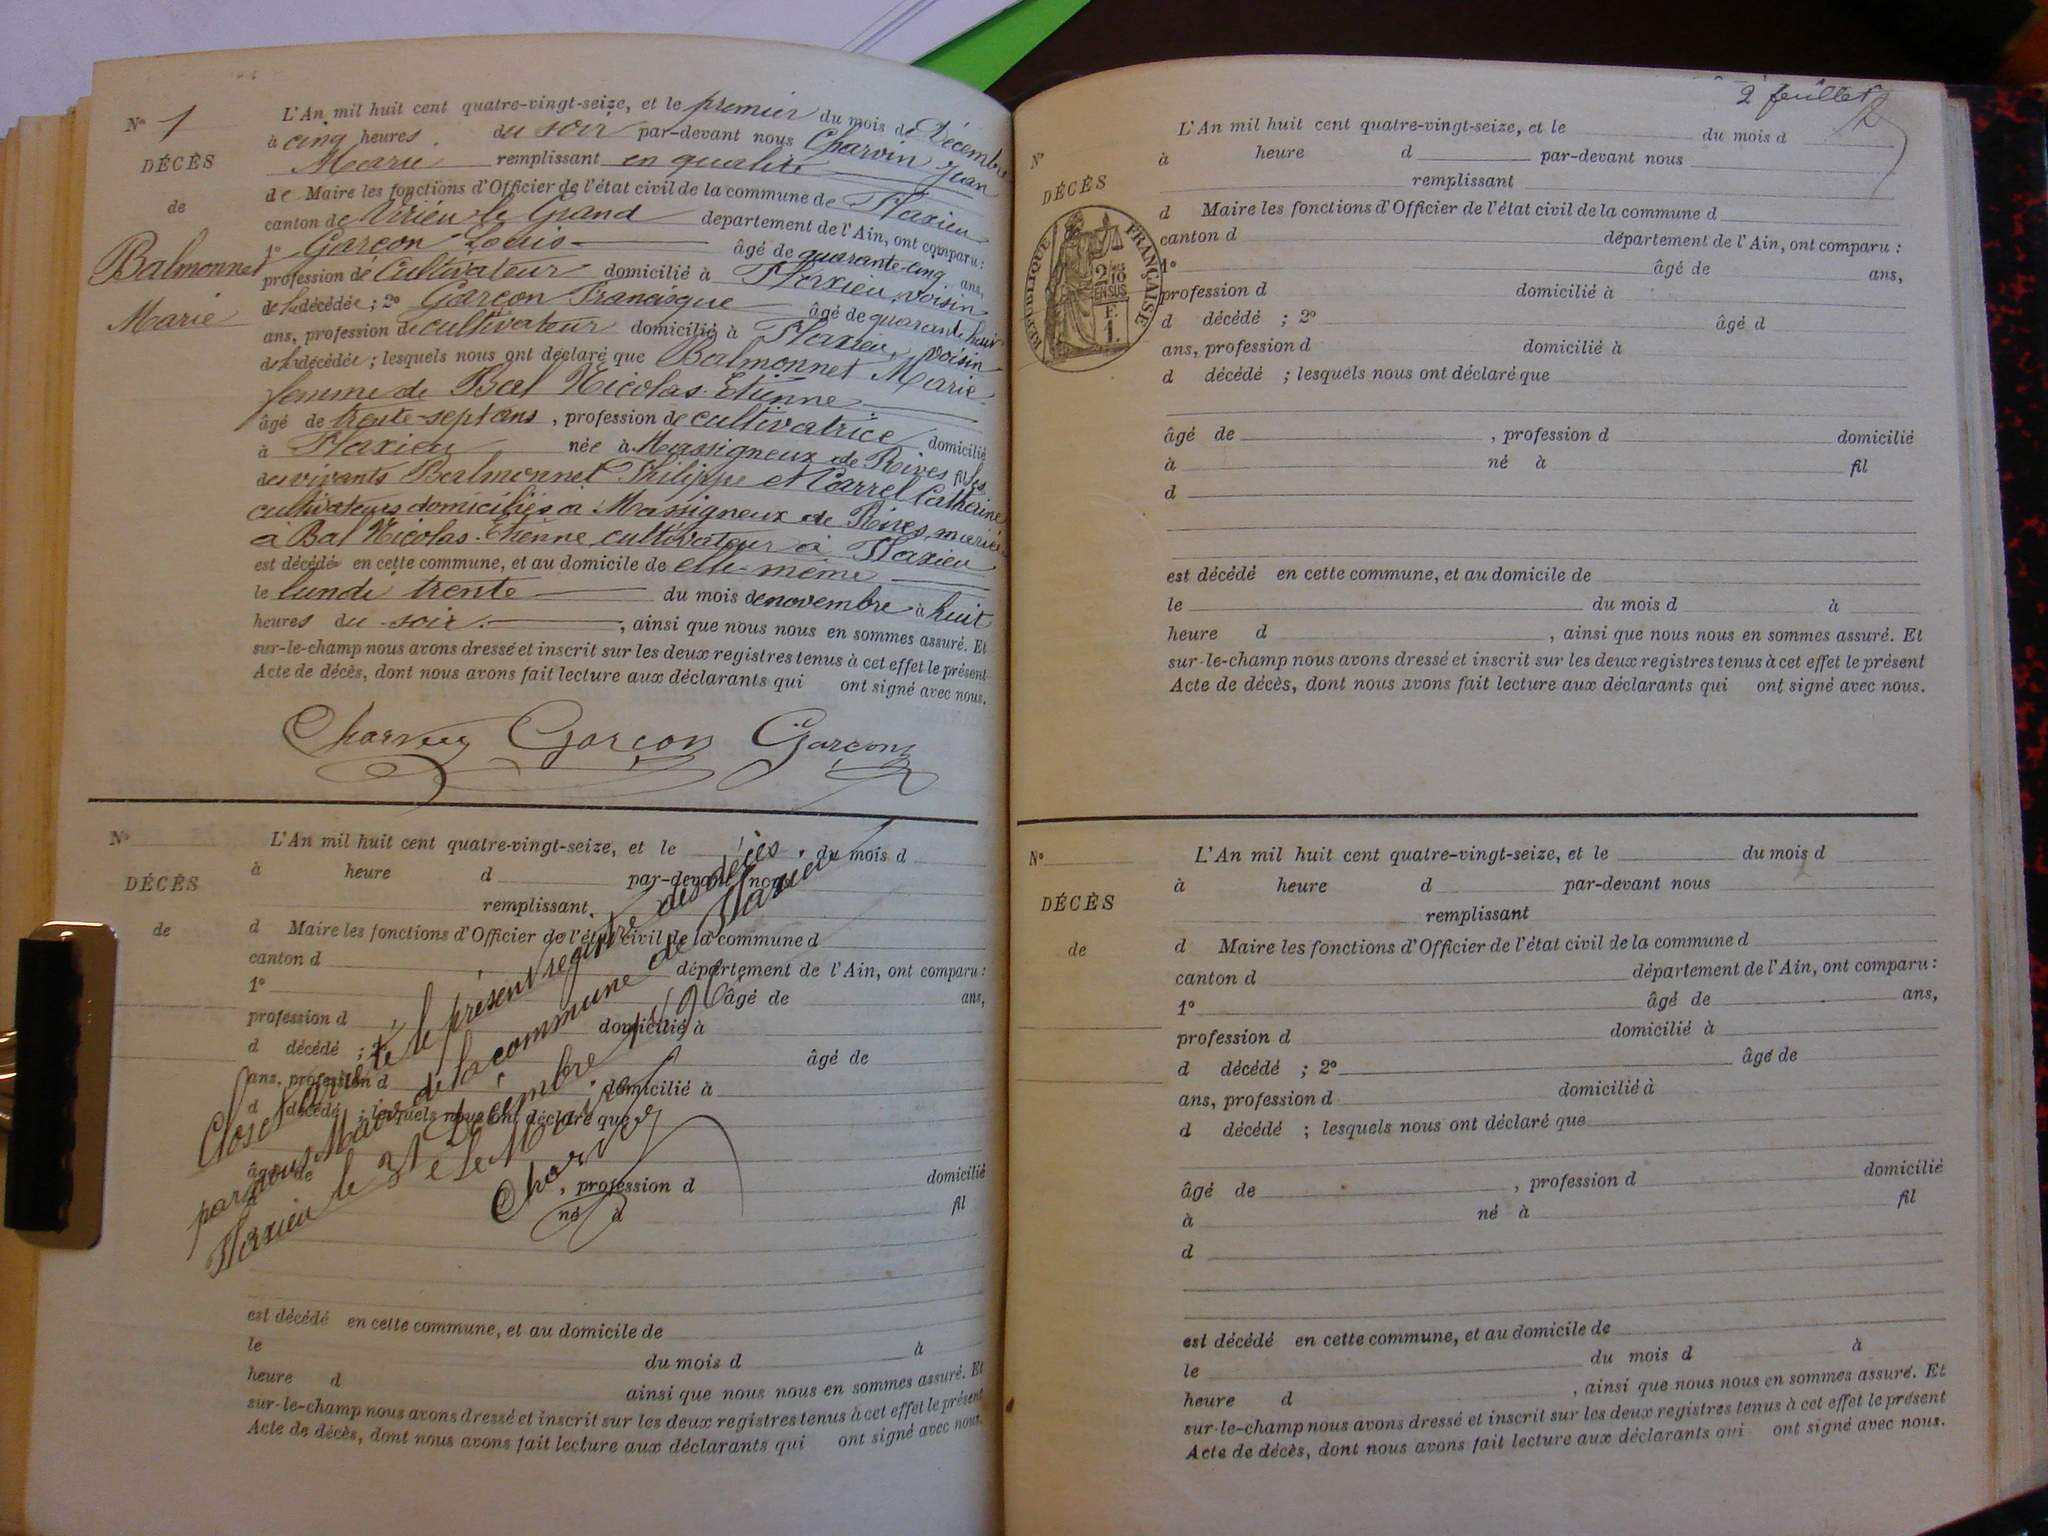 N° 1
DÉCÈS
de
Balmonnet
Marie
L'An mil huit cent quatre-vingt-seize, et le premier du mois de Décembre
à cinq heures du soir par-devant nous Charvin Jean
Marie remplissant en qualité
de Maire les fonctions d'Officier de l'état civil de la commune de Flaxieu
canton de Virieu-le-Grand département de l'Ain, ont comparu :
1° Garçon Louis âgé de quarante-cinq ans,
profession de Cultivateur domicilié à Flaxieu, voisin
de la décédée ; 2° Garçon Francisque âgé de quarante huit
ans, profession de cultivateur domicilié à Flaxieu, voisin
de la décédée ; lesquels nous ont déclaré que Balmonnet Marie
femme de Bal Nicolas-Etienne
âgé de trente-sept ans, profession de cultivatrice domicilié
à Flaxieu née à Massigneux de Rives fille
des vivants Balmonnet Philippe et Carrel Catherine
cultivateurs domiciliés à Massigneux de Rives, mariée
à Bal Nicolas-Etienne cultivateur à Flaxieu
est décédée en cette commune, et au domicile de elle-même
le lundi trente du mois de novembre à huit
heures du soir, ainsi que nous nous en sommes assuré. Et
sur-le-champ nous avons dressé et inscrit sur les deux registres tenus à cet effet le présent
Acte de décès, dont nous avons fait lecture aux déclarants qui ont signé avec nous.
Charvin Garçon Garçon
N°
DÉCÈS
de
L'An mil huit cent quatre-vingt-seize, et le du mois d
à heure d par-devant nous
remplissant
d Maire les fonctions d'Officier de l'état civil de la commune d
canton d département de l'Ain, ont comparu :
1° âgé de ans,
profession d domicilié à
d décédé ; 2° âgé de
ans, profession d domicilié à
d décédé ; lesquels nous ont déclaré que
âgé de , profession d domicilié
à né à fil
d
est décédé en cette commune, et au domicile de
le du mois d à
heure d ainsi que nous nous en sommes assuré. Et
sur-le-champ nous avons dressé et inscrit sur les deux registres tenus à cet effet le présent
Acte de décès, dont nous avons fait lecture aux déclarants qui ont signé avec nous.
Clos et arrêté le présent registre des décès
par nous Maire de la commune de Flaxieu
Flaxieu le 31 Décembre 1896
Le Maire
Charvin
2e feuillet
N°
DÉCÈS
RÉPUBLIQUE FRANÇAISE
2/10 EN SUS
F. 1.
L'An mil huit cent quatre-vingt-seize, et le du mois d
à heure d par-devant nous
remplissant
d Maire les fonctions d'Officier de l'état civil de la commune d
canton d département de l'Ain, ont comparu :
1° âgé de ans,
profession d domicilié à
d décédé ; 2° âgé d
ans, profession d domicilié à
d décédé ; lesquels nous ont déclaré que
âgé de , profession d domicilié
à né à fil
d
est décédé en cette commune, et au domicile de
le du mois d à
heure d , ainsi que nous nous en sommes assuré. Et
sur-le-champ nous avons dressé et inscrit sur les deux registres tenus à cet effet le présent
Acte de décès, dont nous avons fait lecture aux déclarants qui ont signé avec nous.
N°
DÉCÈS
de
L'An mil huit cent quatre-vingt-seize, et le du mois d
à heure d par-devant nous
remplissant
d Maire les fonctions d'Officier de l'état civil de la commune d
canton d département de l'Ain, ont comparu :
1° âgé de ans,
profession d domicilié à
d décédé ; 2° âgé de
ans, profession d domicilié à
d décédé ; lesquels nous ont déclaré que
âgé de , profession d domicilié
à né à fil
d
est décédé en cette commune, et au domicile de
le du mois d à
heure d , ainsi que nous nous en sommes assuré. Et
sur-le-champ nous avons dressé et inscrit sur les deux registres tenus à cet effet le présent
Acte de décès, dont nous avons fait lecture aux déclarants qui ont signé avec nous.